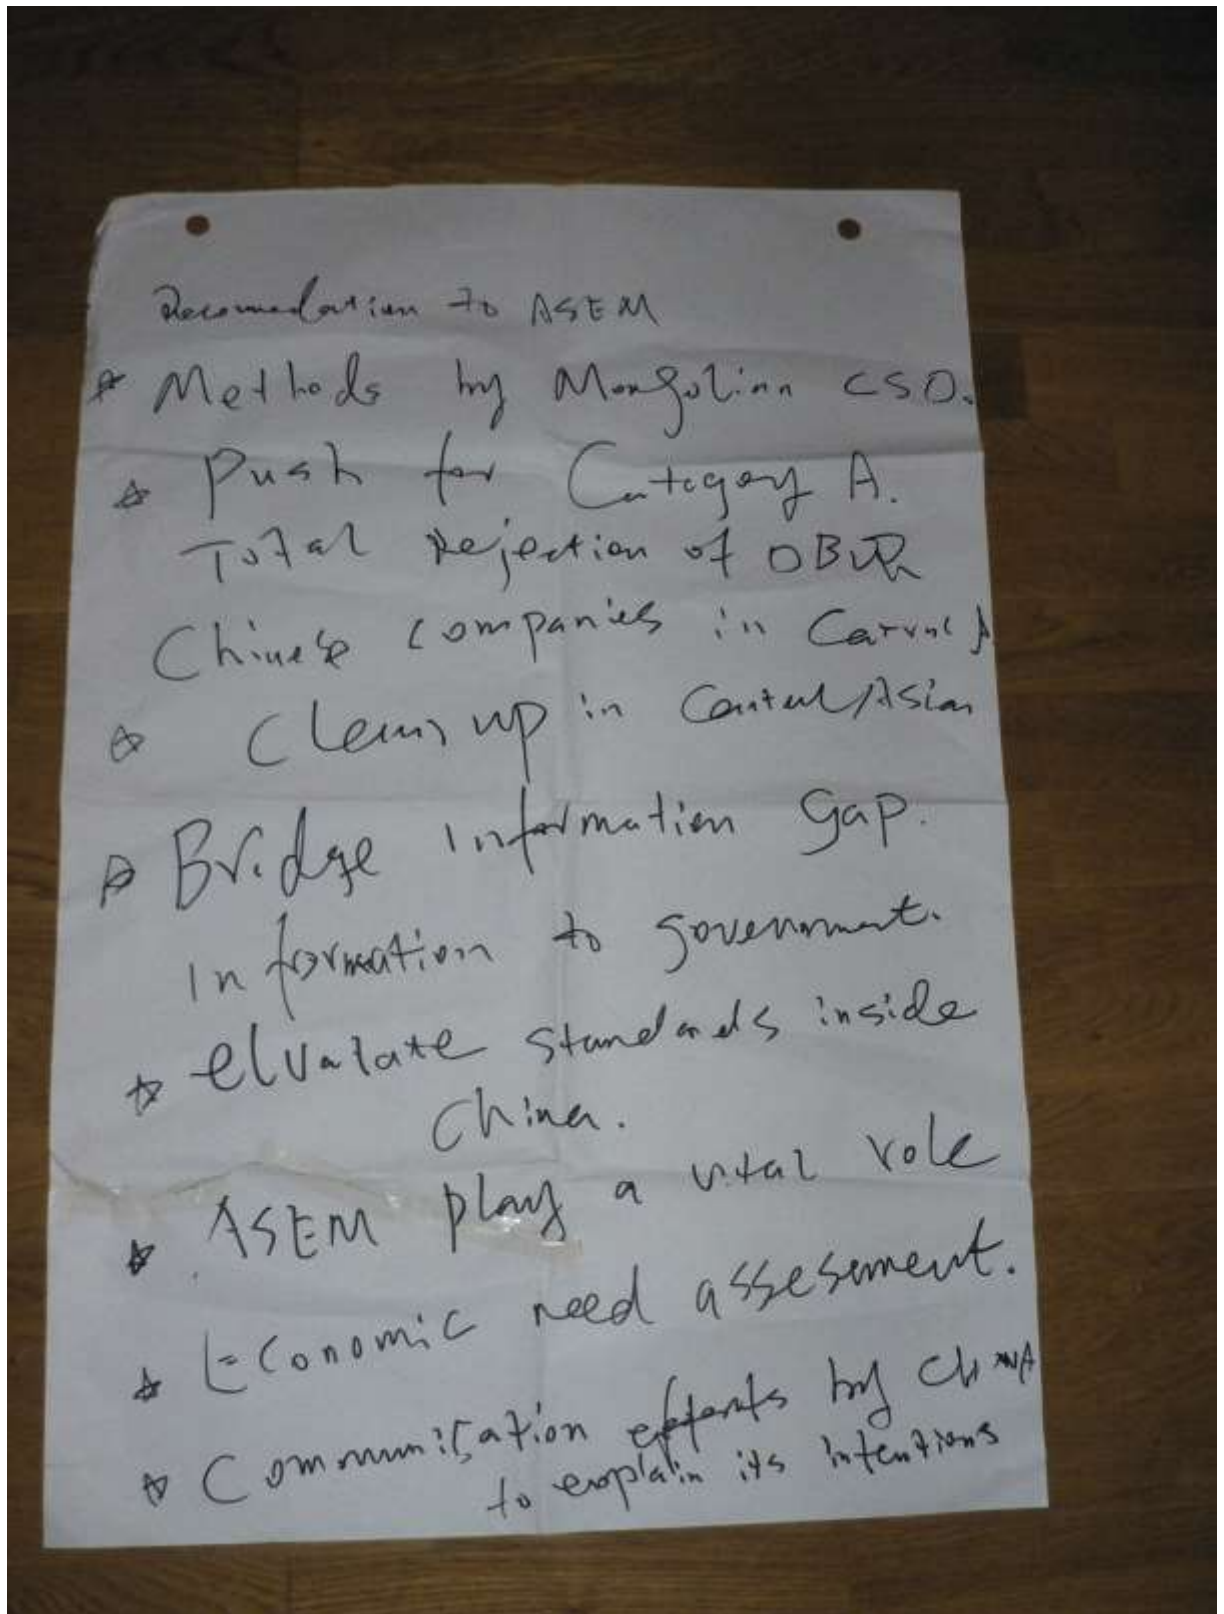 Recomedation to ASEM
☆ Methods by Mongolian CSO.
☆ Push for Category A.
Total Rejection of OBOR
Chinese companies in
☆ Clean up in Central Asian
☆ Bridge information gap.
information to government.
☆ elvalate standards inside
China.
☆ ASEM play a vital role
☆ Economic need assesement.
☆ Communication efforts by CHINA
to explain its intentions